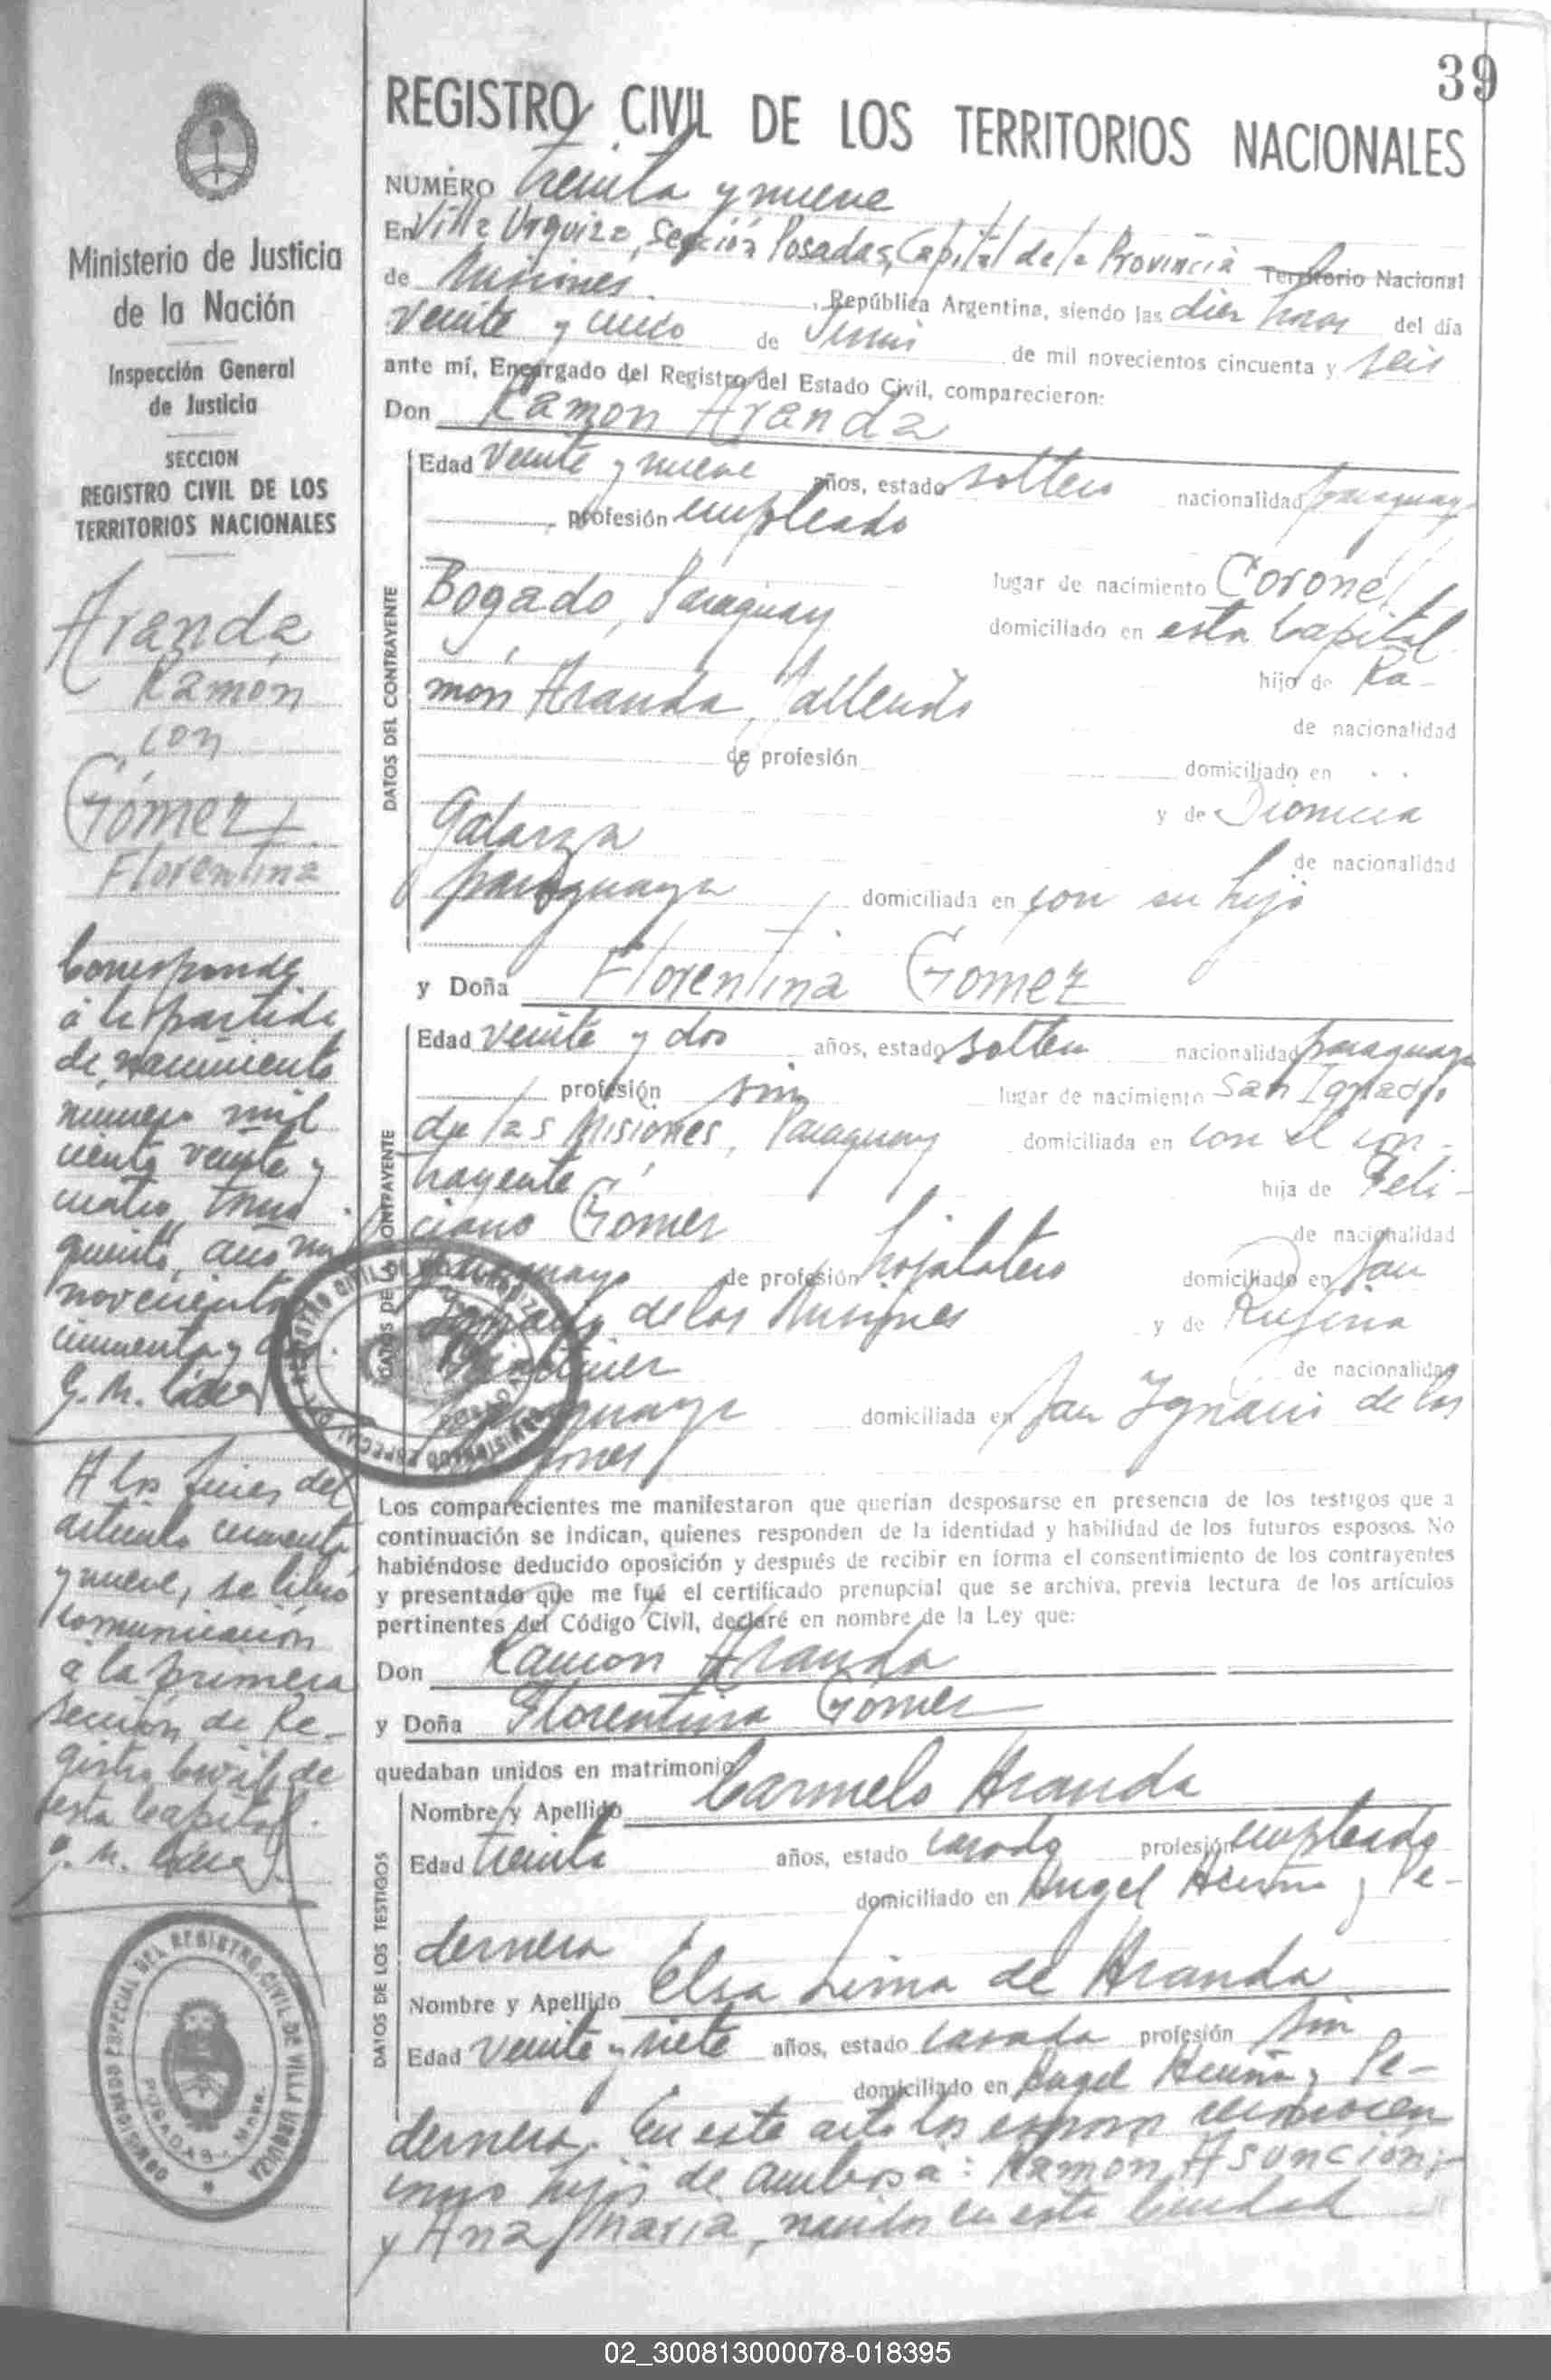 39
REGISTRO CIVIL DE LOS TERRITORIOS NACIONALES
NUMERO treinta y nueve
En Villa Urquiza, Sección Posadas, Capital de la Provincia Territorio Nacional
de Misiones , República Argentina, siendo las diez horas del día
veinte y cinco de Junio de mil novecientos cincuenta y seis
ante mí, Encargado del Registro del Estado Civil, comparecieron:
Don Ramon Aranda
Edad veinte y nueve años, estado soltero nacionalidad paraguay
, profesión empleado
lugar de nacimiento Coronel
Bogado, Paraguay domiciliado en esta Capital
hijo de Ra-
món Aranda, fallecido
de nacionalidad
de profesión domiciliado en
y de Dionicia
Galarza
de nacionalidad
paraguaya domiciliada en con su hijo
y Doña Florentina Gomez
Edad veinte y dos años, estado soltera nacionalidad paraguaya
profesión sin lugar de nacimiento San Ignacio
de las Misiones, Paraguay domiciliada en con el con-
trayente hija de Feli-
ciano Gomez de nacionalidad
paraguayo de profesión hojalatero domiciliado en San
Ignacio de las Misiones y de Rufina
de nacionalidad
paraguaya domiciliada en San Ignacio de las
DATOS DEL CONTRAYENTE
Los comparecientes me manifestaron que querían desposarse en presencia de los testigos que a
continuación se indican, quienes responden de la identidad y habilidad de los futuros esposos. No
habiéndose deducido oposición y después de recibir en forma el consentimiento de los contrayentes
y presentado que me fué el certificado prenupcial que se archiva, previa lectura de los artículos
pertinentes del Código Civil, declaré en nombre de la Ley que:
Don Ramon Aranda
y Doña Florentina Gomez
quedaban unidos en matrimonio
Nombre y Apellido Carmelo Aranda
Edad treinta años, estado casado profesión empleado
domiciliado en Angel Acuña y Pe-
dernera
Nombre y Apellido Elsa Lima de Aranda
Edad veinte y siete años, estado casada profesión sin
domiciliado en Angel Acuña y Pe-
dernera. En este acto los esposos reconocen
como hijos de ambos a: Ramon Asunción;
y Ana Maria, nacidos en esta Ciudad
DATOS DE LOS TESTIGOS
Ministerio de Justicia
de la Nación
Inspección General
de Justicia
SECCION
REGISTRO CIVIL DE LOS
TERRITORIOS NACIONALES
Aranda
Ramón
con
Gómez
Florentina
Corresponde
á la partida
de nacimiento
numero mil
ciento veinte y
cuatro, tomo
quinto, año mil
novecientos
cincuenta y
A los fines del
artículo cincuenta
y nueve, se libró
comunicación
a la primera
Sección de Re-
gistro Civil de
esta Capital.
COMISIONADO ESPECIAL DEL REGISTRO CIVIL DE VILLA URQUIZA
POSADAS
02_300813000078-018395